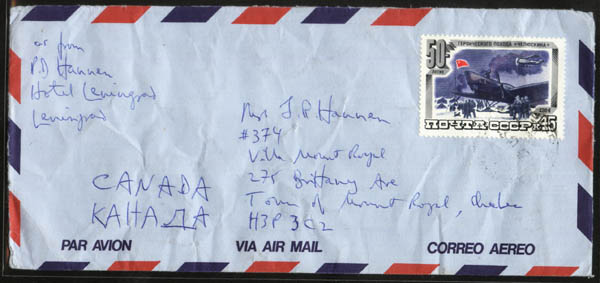 air from
P.D Hannen
Hotel Leningrad
Leningrad
50
ЛЕТИЕ
ГЕРОИЧЕСКОГО ПОХОДА «ЧЕЛЮСКИНА»
ПОЧТА СССР 45
Mrs J.P. Hannen
#374
Villa Mount Royal
275 Brittany Ave
Town of Mount Royal, Quebec
H3P 3C2
CANADA
КАНАДА
PAR AVION
VIA AIR MAIL
CORREO AEREO